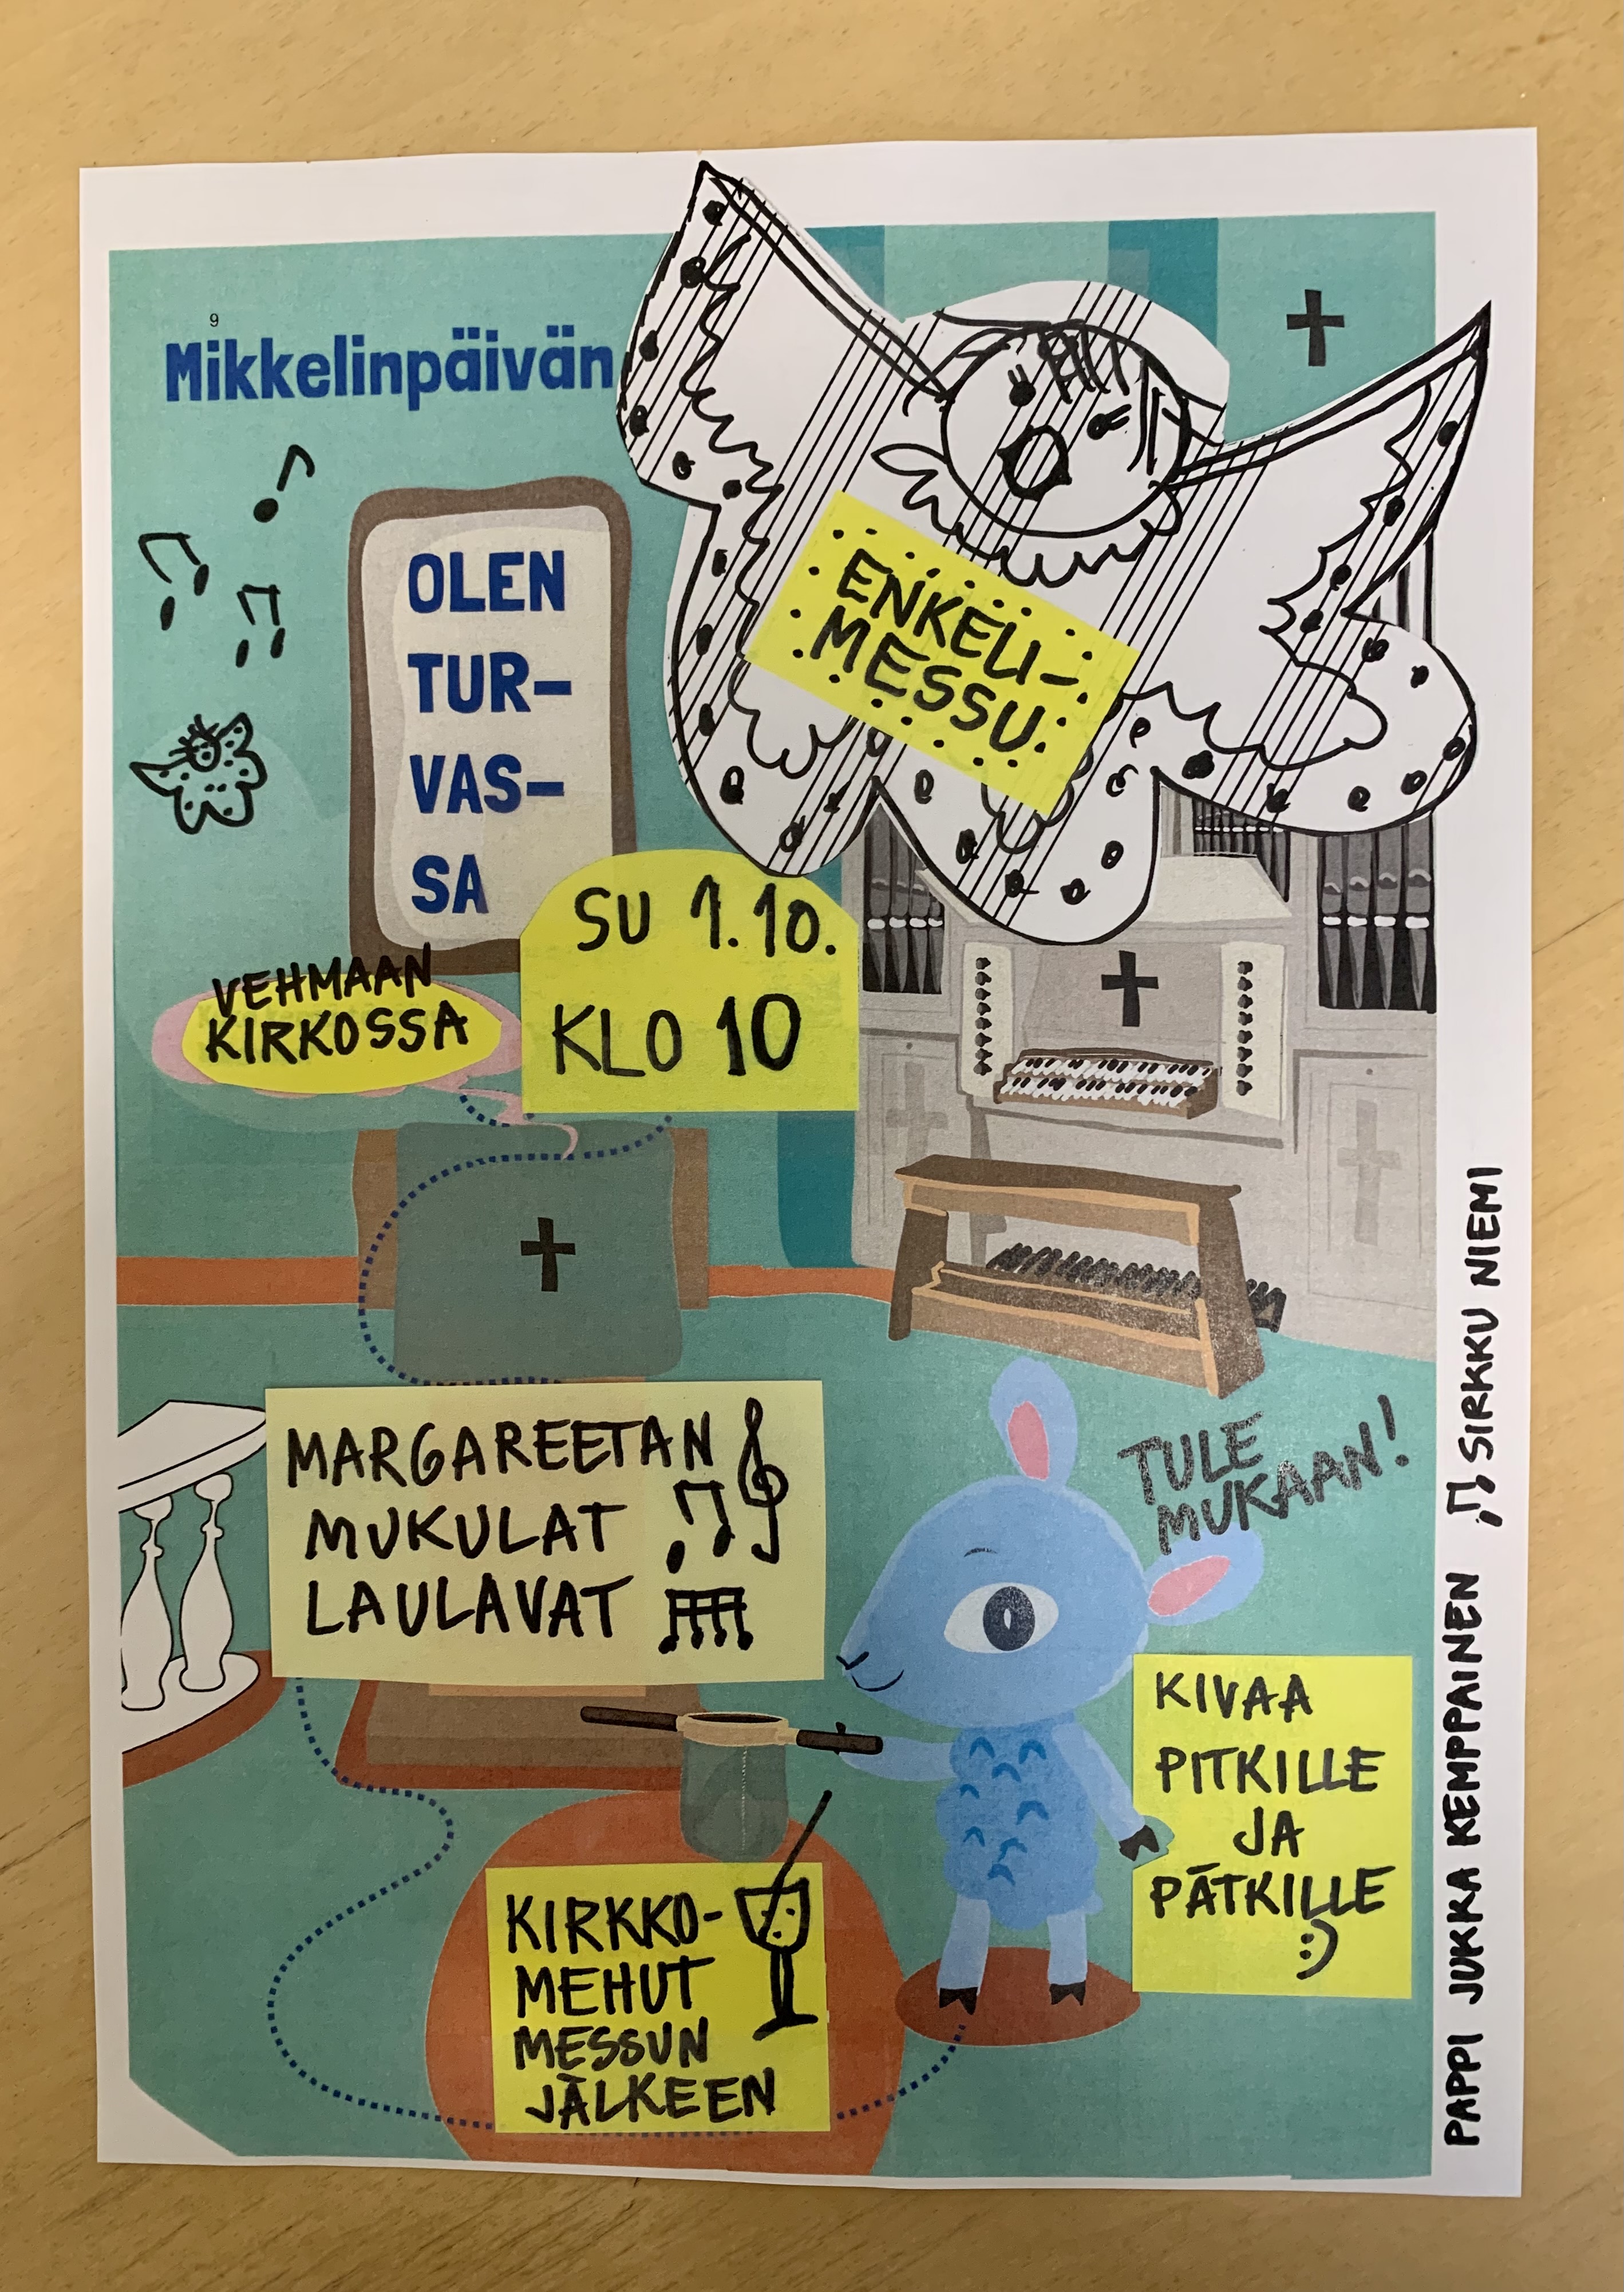 9
Mikkelinpäivän
ENKELI-
MESSU
OLEN
TUR-
VAS-
SA
SU 1.10.
KLO 10
VEHMAAN
KIRKOSSA
MARGAREETAN
MUKULAT
LAULAVAT
TULE
MUKAAN!
KIVAA
PITKILLE
JA
PÄTKILLE
:)
KIRKKO-
MEHUT
MESSUN
JÄLKEEN
PAPPI JUKKA KEMPPAINEN ♫ SIRKKU NIEMI